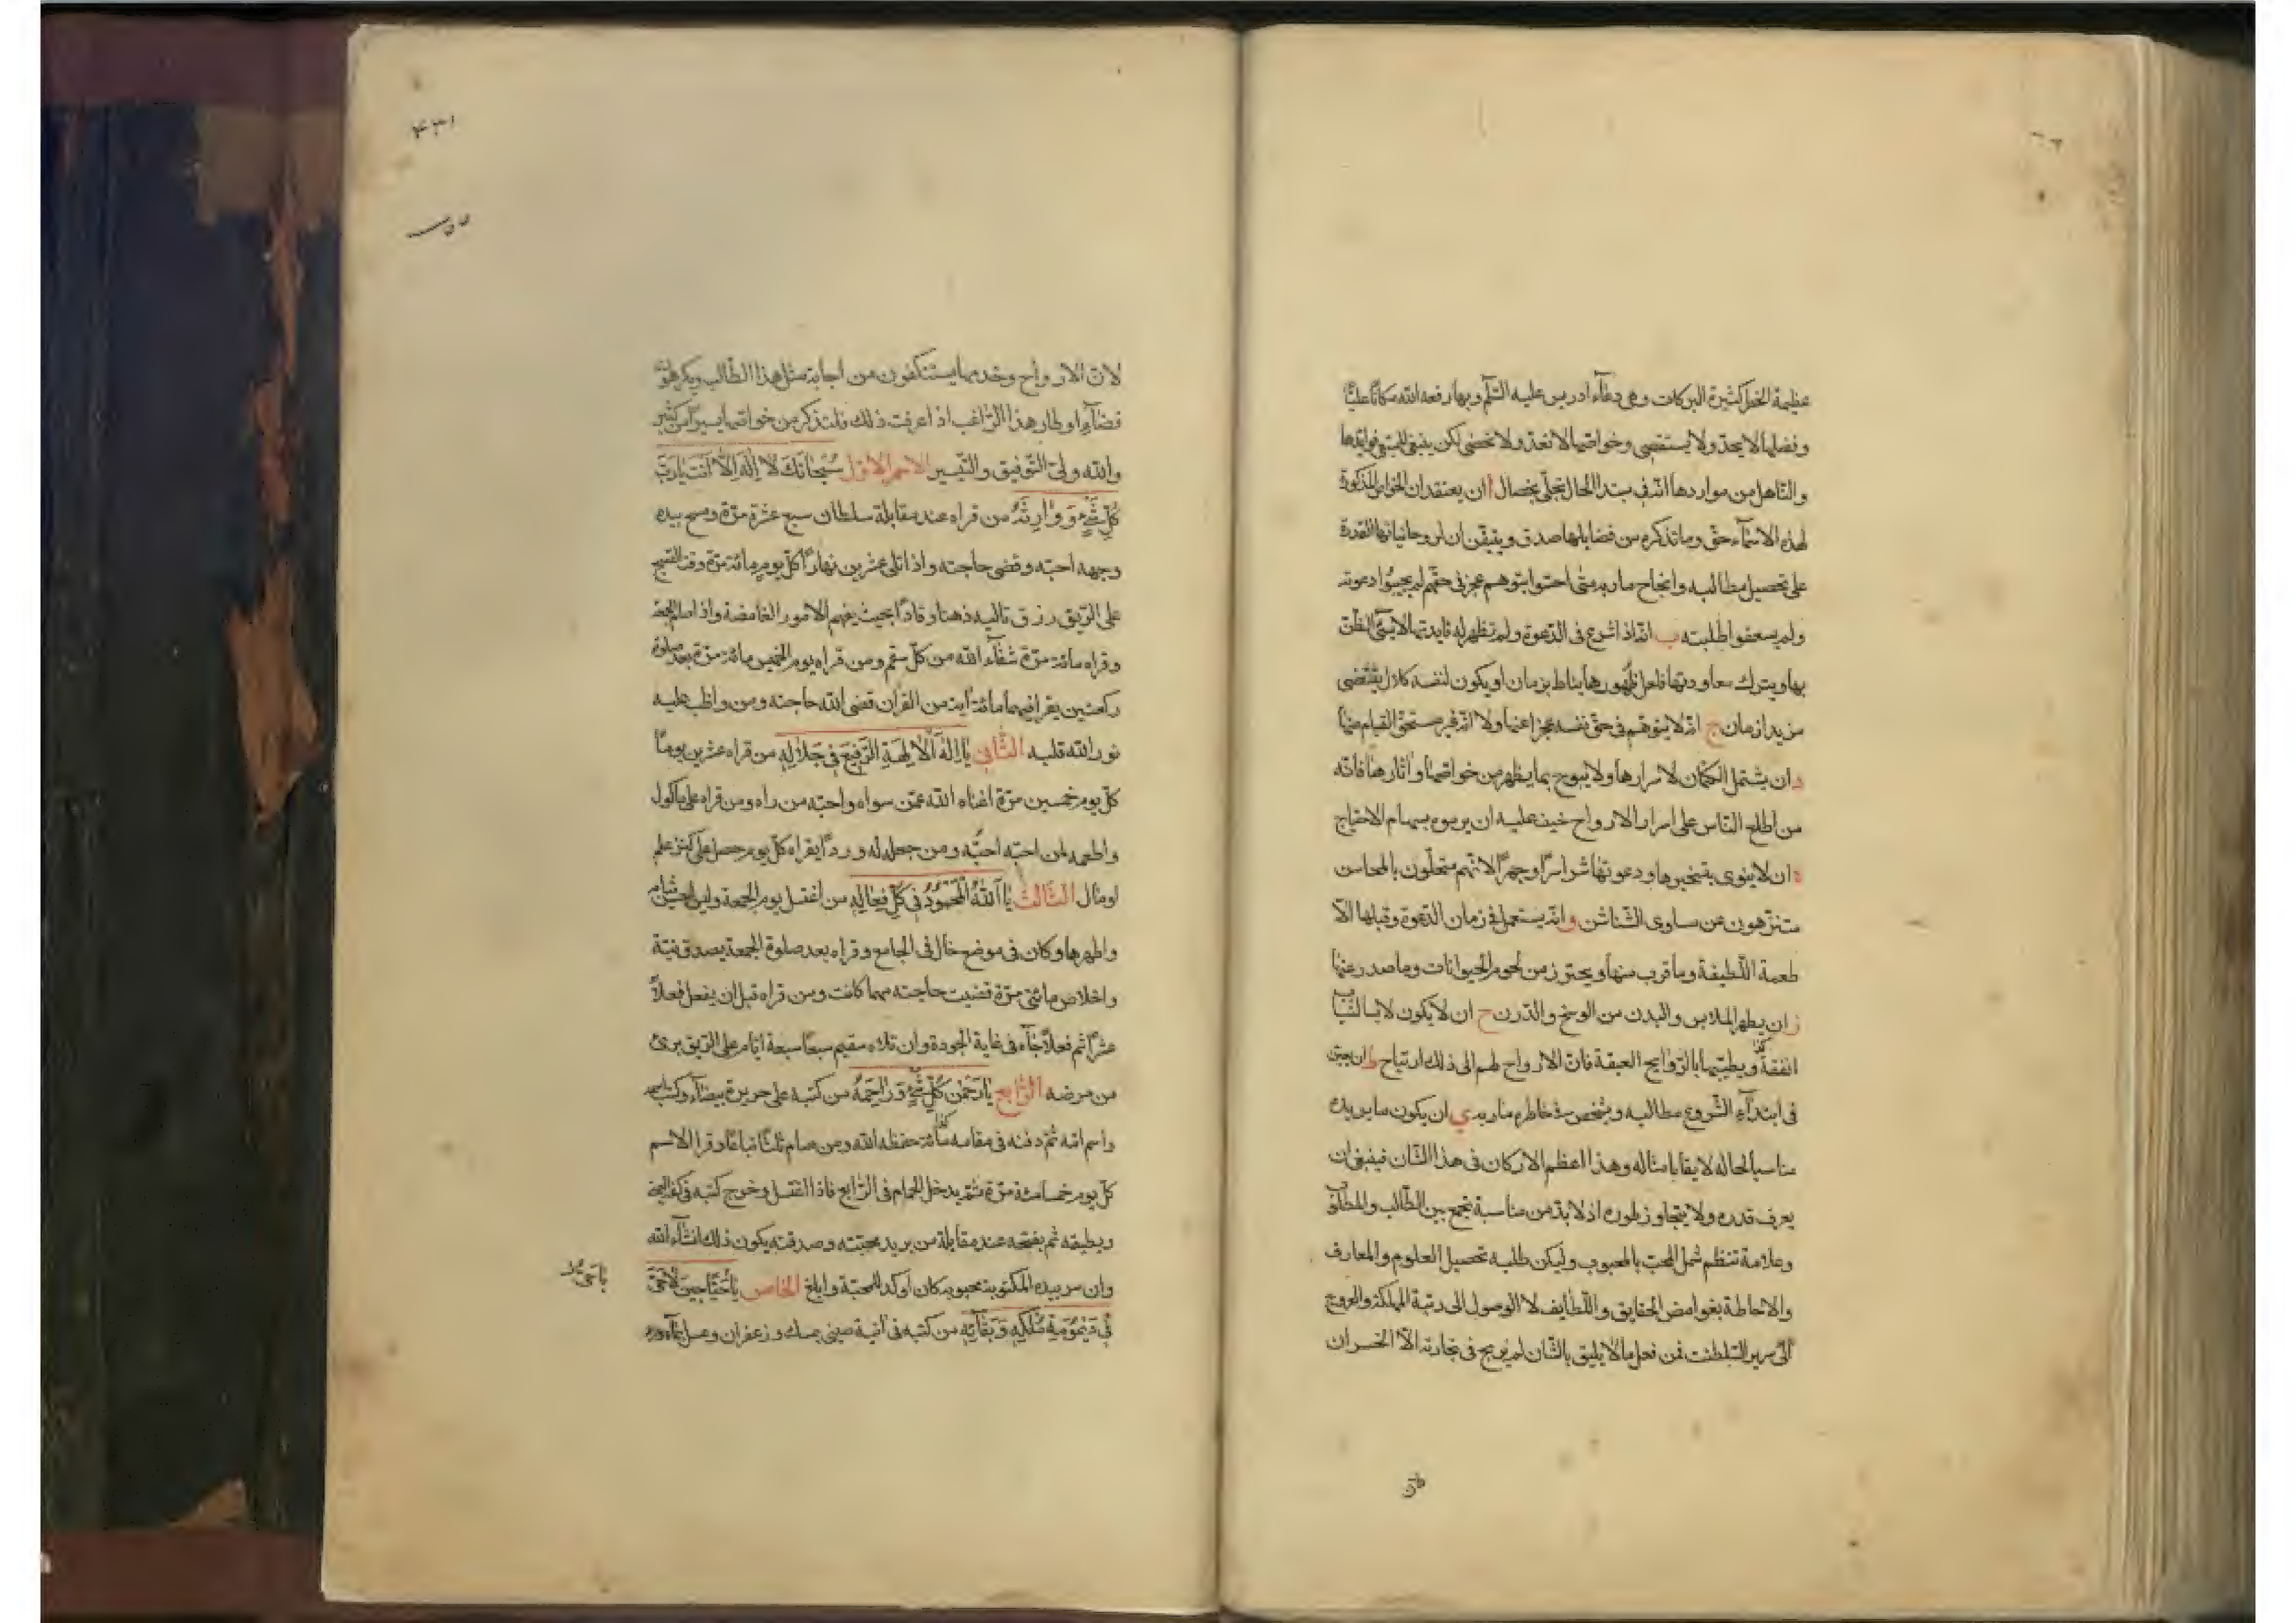 عظيمة الخطر كثيرة البركات وهى دعآء ادريس عليه السّلم وبها رفعه الله مكانًا عليًّا
وفضلها لا يحدّ ولا يستقصى وخواصّها لا تعدّ ولا تحصى لكن ينبغى للمبتغى فوايدها
والنّاهل من مواردها انّه فى مبتدا الحال يتحلّى بخصال ا ان يعتقد ان الخواص المذكورة
لهذه الاسمآء حقّ وما نذكره من فضايلها صدق ويتيقّن ان لروحانياتها القدرة
على تحصيل مطالبه وانجاح ماربه متى احتوا بتوهم عجز فى حقّهم لم يجيبوا دعوته
ولم يسعفوا طلبته ب انّه اذا شرع فى الدّعوة ولم تظهر له فايدتها لا يسئ الظّن
بها ويترك معاودتها فلعل ظهورها يناط بزمان او يكون لنفسه كلال يقتضى
مزيد ازمان ج انّه لا يتوهّم فى حق نفسه عجزا عنها ولا انّه غير مستحق القيام بها
د ان يشتمل الكتمان لاسرارها ولا يبوح بما يظهر من خواصّها واثارها فانّه
من اطلع النّاس على اسرار الارواح خيف عليه ان يرموه بسهام الاحتياج
ه ان لا ينوى بتسخيرها ودعوتها شرا سرًّا وجهرًا لانّهم متحلّون بالمحاسن
متنزّهون عن مساوى الشّناشن و انّه يستعمل فى زمان الدّعوة وقبلها الا
طعمة اللّطيفة وما قرب منها ويحترز من لحوم الحيوانات وما صدر عنها
ز ان يطهر الملابس والبدن من الوسخ والدّرن ح ان لا يكون لابسا لثياب
انفقة ويطيّبها بالرّوايح العبقة فانّ الارواح لهم الى ذلك ارتياح ط ان يعين
فى ابتدآء الشّروع مطالبه ويشخص فى خاطره ماربه ى ان يكون ما يريده
مناسبا لحاله لايقا بامثاله وهذا اعظم الاركان فى هذا الشّان فينبغى ان
يعرف قدره ولا يتجاوز طوره اذ لا بدّ من مناسبة تجمع بين الطّالب والمطلوب
وعلامة تنظم شمل المحبّ بالمحبوب وليكن طلبه تحصيل العلوم والمعارف
والاحاطة بغوامض الحقايق واللّطايف لا الوصول الى رتبة المملكة والعروج
الى سرير السّلطنة فمن فعل ما لا يليق بالشّان لم يربح فى تجارته الّا الخسران
لانّ الارواح وخدمها يستنكفون من اجابة مثل هذا الطّالب ويكرهون
قضآء اوطار هذا الرّاغب اذا عرفت ذلك فلنذكر من خواصها يسيرًا من كثير
والله ولىّ التّوفيق والتّيسير الاسم الاوّل سُبْحَانَكَ لَا اِلٰهَ اِلَّا اَنْتَ يَا رَبَّ
كُلِّ شَىْءٍ وَوَارِثَهُ من قراه عند مقابلة سلطان سبع عشرة مرّة ومسح بيده
وجهه احبّه وقضى حاجته واذا تلى عشرين نهارًا كلّ يوم مائة مرّة وقت الصّبح
على الرّيق رزق تاليه ذهنا وقّادًا بحيث يفهم الامور الغامضة واذا صام الجمعة
وقراه مائة مرّة شفآه الله من كلّ سقم ومن قراه يوم الخميس مائة مرّة بعد صلوة
ركعتين يقرا فيهما مائة اية من القران قضى الله حاجته ومن واظب عليه
نوّر الله قلبه الثّانى يَا اِلٰهَ الْاٰلِهَةِ الرَّفِيعَ فِى جَلَالِهِ من قراه عشرين يومًا
كلّ يوم خمسين مرّة اغناه الله عمّن سواه واحبّه من راه ومن قراه على ماكول
واطعمه لمن احبّه احبّه ومن جعله له وردًا يقراه كلّ يوم حصل على كنز علم
او مال الثّالث يَا اَللهُ الْمَحْمُودُ فِى كُلِّ فِعَالِهِ من اغتسل يوم الجمعة ولبس احسن ثيابه
واطهرها وكان فى موضع خال فى الجامع وقراه بعد صلوة الجمعة بصدق نيّة
واخلاص مائتى مرّة قضيت حاجته مهما كانت ومن قراه قبل ان يفعل فعلًا
عشرًا ثم فعله جآء فى غاية الجودة وان تلاه سقيم سبعًا سبعة ايّام على الرّيق برئ
من مرضه الرّابع يَا رَحْمٰنَ كُلِّ شَىْءٍ وَرَاحِمَهُ من كتبه على حريرة بيضآء وكتب اسمه
واسم امّه ثمّ دفنه فى مقامه حفظه الله ومن صام ثلثًا تباعًا وقرا الاسم
كلّ يوم خمسمائة مرّة ثمّ يدخل الحمام فى الرّابع فاذا اغتسل وخرج كتبه فى كفّه اليمنى
ويطبقه ثم يفتحه عند مقابلة من يريد محبّته وصدقته يكون ذلك انشآء الله
وان مس بيده المكتوبة محبوبه كان اوكد للمحبة وابلغ الخامس يَا حَيًّا حِينَ لَا حَىَّ
فِى دَيْمُومَةِ مُلْكِهِ وَبَقَآئِهِ من كتبه فى انية صينى بمسك وزعفران وعسل